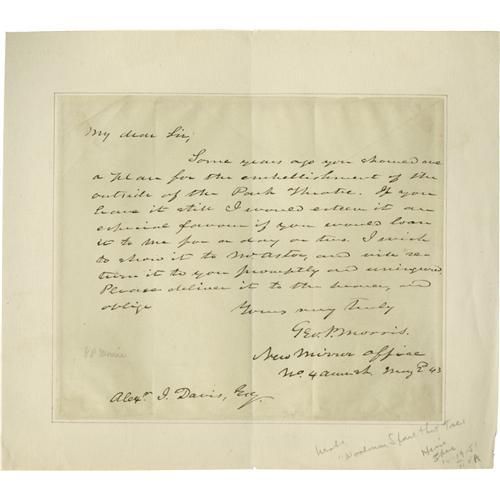 My dear Sir,
Some years ago you showed me
a plan for the embellishment of the
outside of the Park Theatre. If you
have it still I would esteem it an
especial favour if you would loan
it to me for a day or two. I wish
to show it to Mr Astor, and will re-
turn it to you promptly and uninjured
Please deliver it to the bearer, and
oblige
Yours very truly
Geo. P. Morris.
New Mirror Office
No. 4 Ann st. May 43
Alexr. J. Davis, Esq.
G P Morris
Wrote
"Woodman Spare that Tree